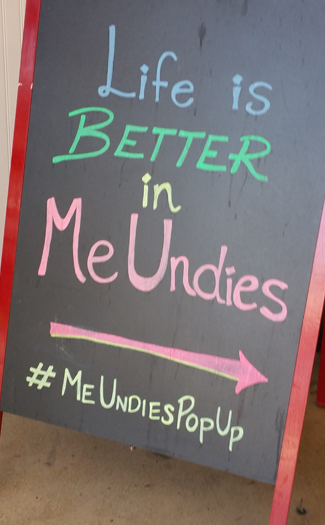 Life is
BETTER
in
MeUndies
#MEUNDIESPOPUP